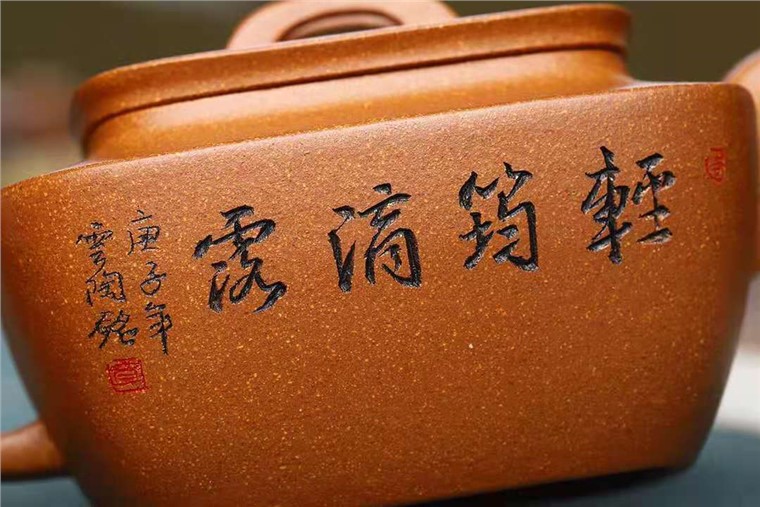 輕筠滴露
庚子年
雲陶銘